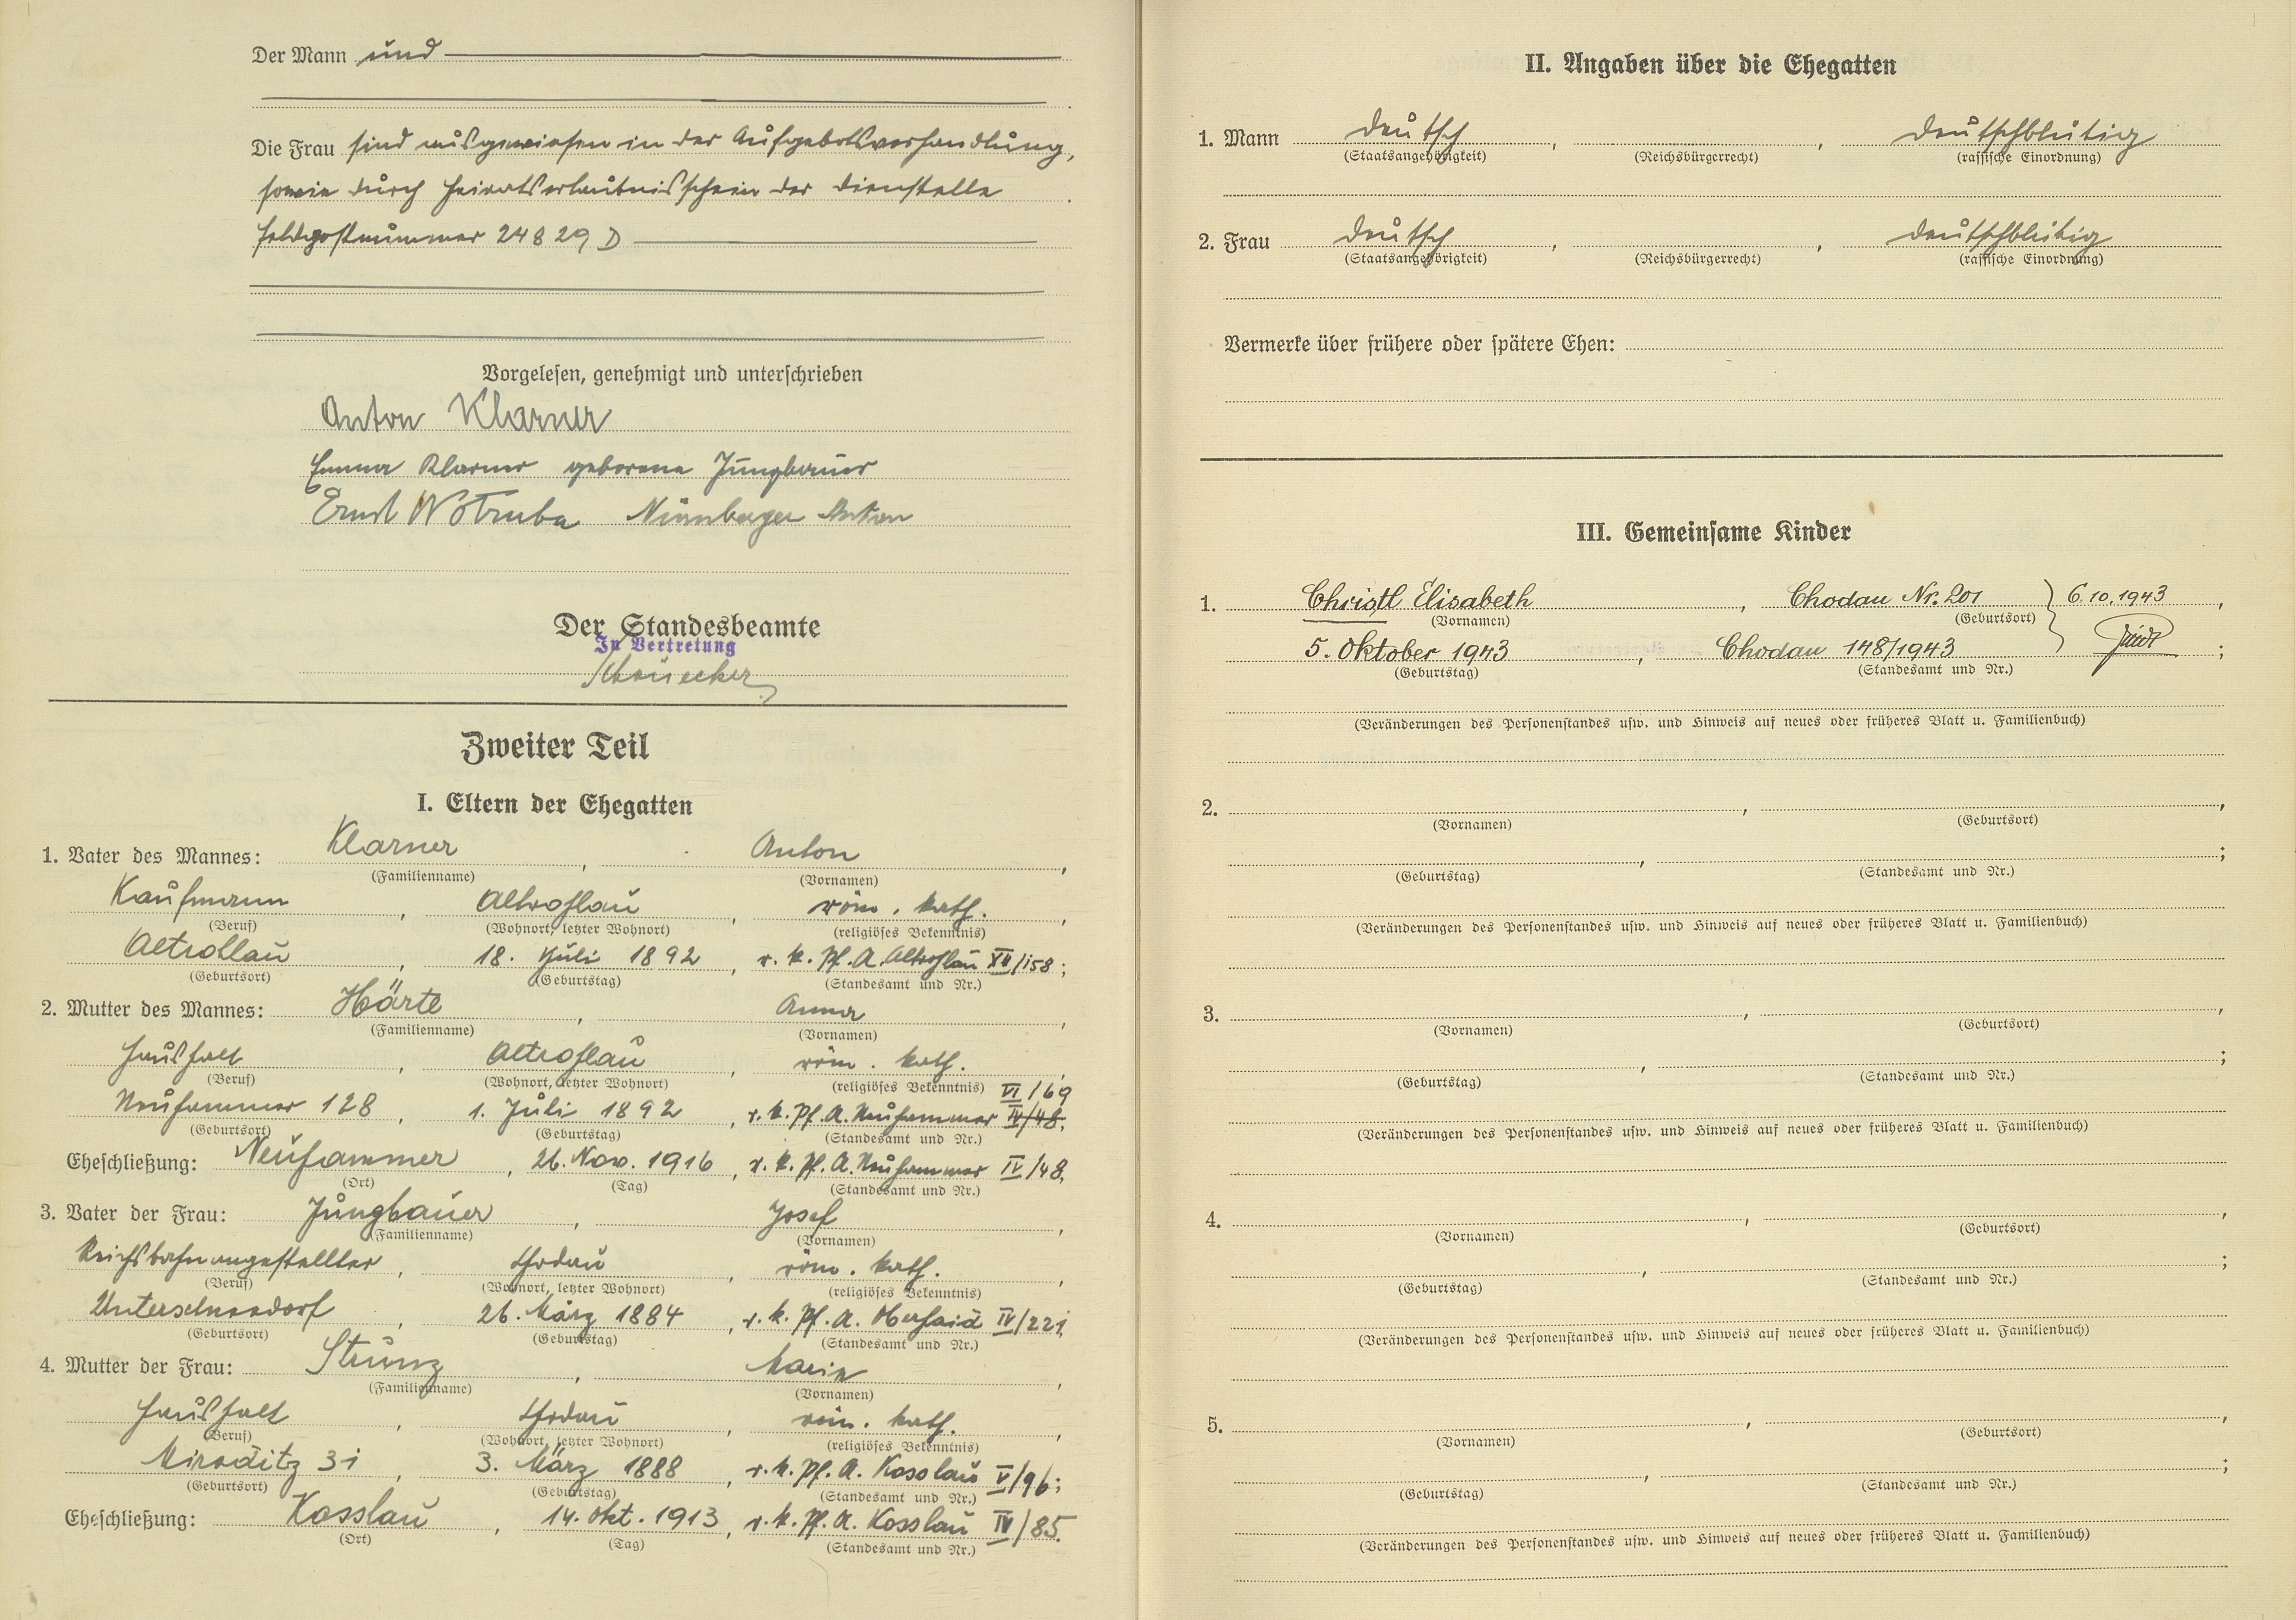 Der Mann und
Die Frau sind ausgewiesen in der Aufgebotsverhandlung,
sowie durch Heiratserlaubnisschein der Dienstelle
Feldpostnummer 24829 D
Vorgelesen, genehmigt und unterschrieben
Anton Klarner
Emma Klarner geborene Jungbauer
Ernst Wotruba Nürnberger Anton
Der Standesbeamte
In Vertretung
Zweiter Teil
I. Eltern der Ehegatten
1. Vater des Mannes: Klarner, Anton,
(Familienname) (Vornamen)
Kaufmann, Altrohlau, röm. kath.,
(Beruf) (Wohnort, letzter Wohnort) (religiöses Bekenntnis)
Altrohlau, 18. Juli 1892, r. k. Pf. A. Altrohlau XII/158;
(Geburtsort) (Geburtstag) (Standesamt und Nr.)
2. Mutter des Mannes: Härtl, Anna,
(Familienname) (Vornamen)
Haushalt, Altrohlau, röm. kath.,
(Beruf) (Wohnort, letzter Wohnort) (religiöses Bekenntnis) VI/69
Neuhammer 128, 1. Juli 1892, r. k. Pf. A. Neuhammer IV/48;
(Geburtsort) (Geburtstag) (Standesamt und Nr.)
Eheschließung: Neuhammer, 26. Nov. 1916, r. k. Pf. A. Neuhammer IV/48,
(Ort) (Tag) (Standesamt und Nr.)
3. Vater der Frau: Jungbauer, Josef,
(Familienname) (Vornamen)
Reichsbahnangestellter, Chodau, röm. kath.,
(Beruf) (Wohnort, letzter Wohnort) (religiöses Bekenntnis)
Unterschneedorf, 26. März 1884, r. k. Pf. A. Oberhaid IV/221;
(Geburtsort) (Geburtstag) (Standesamt und Nr.)
4. Mutter der Frau: Strunz, Marie,
(Familienname) (Vornamen)
Haushalt, Chodau, röm. kath.,
(Beruf) (Wohnort, letzter Wohnort) (religiöses Bekenntnis)
Miroditz 31, 3. März 1888, r. k. Pf. A. Kosslau V/96;
(Geburtsort) (Geburtstag) (Standesamt und Nr.)
Eheschließung: Kosslau, 14. Okt. 1913, r. k. Pf. A. Kosslau IV/85.
(Ort) (Tag) (Standesamt und Nr.)
II. Angaben über die Ehegatten
1. Mann deutsch, , deutschblütig
(Staatsangehörigkeit) (Reichsbürgerrecht) (rassische Einordnung)
2. Frau deutsch, , deutschblütig
(Staatsangehörigkeit) (Reichsbürgerrecht) (rassische Einordnung)
Vermerke über frühere oder spätere Ehen:
III. Gemeinsame Kinder
1. Christl Elisabeth, Chodau Nr. 201 6.10.1943,
(Vornamen) (Geburtsort)
5. Oktober 1943, Chodau 148/1943 ;
(Geburtstag) (Standesamt und Nr.)
(Veränderungen des Personenstandes usw. und Hinweis auf neues oder früheres Blatt u. Familienbuch)
2. , ,
(Vornamen) (Geburtsort)
, ;
(Geburtstag) (Standesamt und Nr.)
(Veränderungen des Personenstandes usw. und Hinweis auf neues oder früheres Blatt u. Familienbuch)
3. , ,
(Vornamen) (Geburtsort)
, ;
(Geburtstag) (Standesamt und Nr.)
(Veränderungen des Personenstandes usw. und Hinweis auf neues oder früheres Blatt u. Familienbuch)
4. , ,
(Vornamen) (Geburtsort)
, ;
(Geburtstag) (Standesamt und Nr.)
(Veränderungen des Personenstandes usw. und Hinweis auf neues oder früheres Blatt u. Familienbuch)
5. , ,
(Vornamen) (Geburtsort)
, ;
(Geburtstag) (Standesamt und Nr.)
(Veränderungen des Personenstandes usw. und Hinweis auf neues oder früheres Blatt u. Familienbuch)